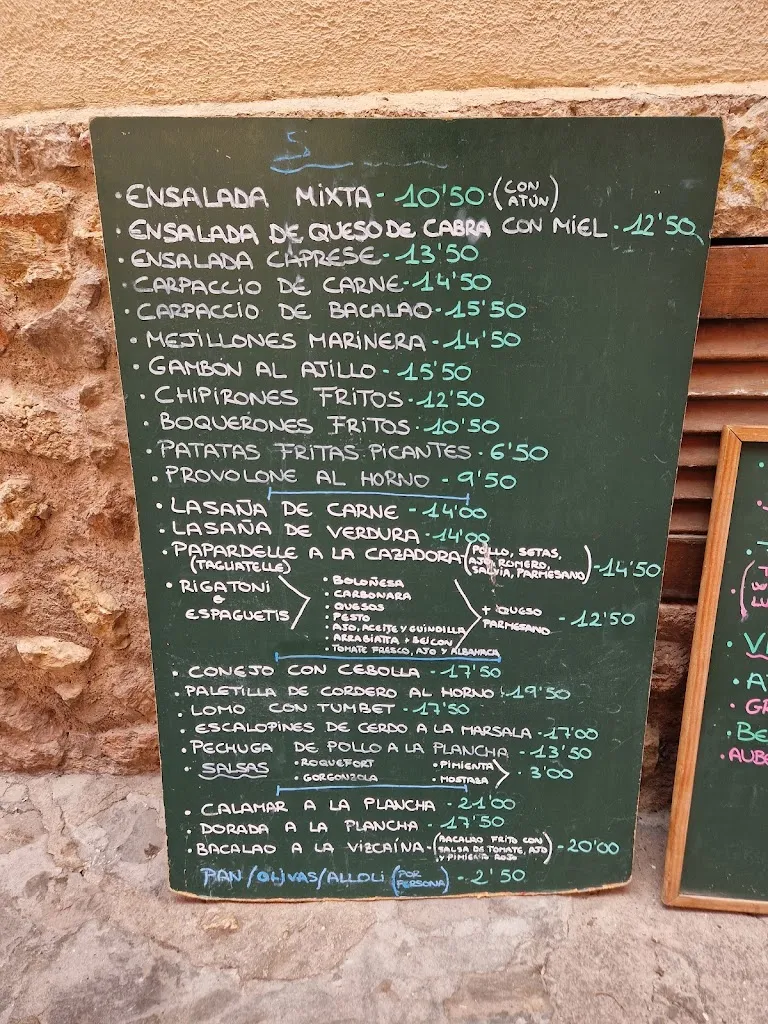 5
· ENSALADA MIXTA - 10'50 · (CON ATÚN)
· ENSALADA DE QUESO DE CABRA CON MIEL - 12'50
· ENSALADA CAPRESE - 13'50
· CARPACCIO DE CARNE - 14'50
· CARPACCIO DE BACALAO - 15'50
· MEJILLONES MARINERA - 14'50
· GAMBÓN AL AJILLO - 15'50
· CHIPIRONES FRITOS - 12'50
· BOQUERONES FRITOS - 10'50
· PATATAS FRITAS PICANTES - 6'50
· PROVOLONE AL HORNO - 9'50
· LASAÑA DE CARNE - 14'00
· LASAÑA DE VERDURA - 14'00
· PAPARDELLE A LA CAZADORA - (POLLO, SETAS, AJO, ROMERO, SALVIA, PARMESANO) - 14'50
(TAGLIATELLE)
· RIGATONI & ESPAGUETIS
· BOLOÑESA
· CARBONARA
· QUESOS
· PESTO
· AJO, ACEITE Y GUINDILLA
· ARRABIATTA + BEICON
· TOMATE FRESCO, AJO Y ALBAHACA
+ QUESO PARMESANO - 12'50
· CONEJO CON CEBOLLA - 17'50
· PALETILLA DE CORDERO AL HORNO - 19'50
· LOMO CON TUMBET - 17'50
· ESCALOPINES DE CERDO A LA MARSALA - 17'00
· PECHUGA DE POLLO A LA PLANCHA - 13'50
· SALSAS · ROQUEFORT · PIMIENTA
· GORGONZOLA · MOSTAZA 3'00
· CALAMAR A LA PLANCHA - 21'00
· DORADA A LA PLANCHA - 17'50
· BACALAO A LA VIZCAÍNA - (BACALAO FRITO CON SALSA DE TOMATE, AJO Y PIMIENTO ROJO) - 20'00
PAN/OLIVAS/ALLOLI (POR PERSONA) - 2'50